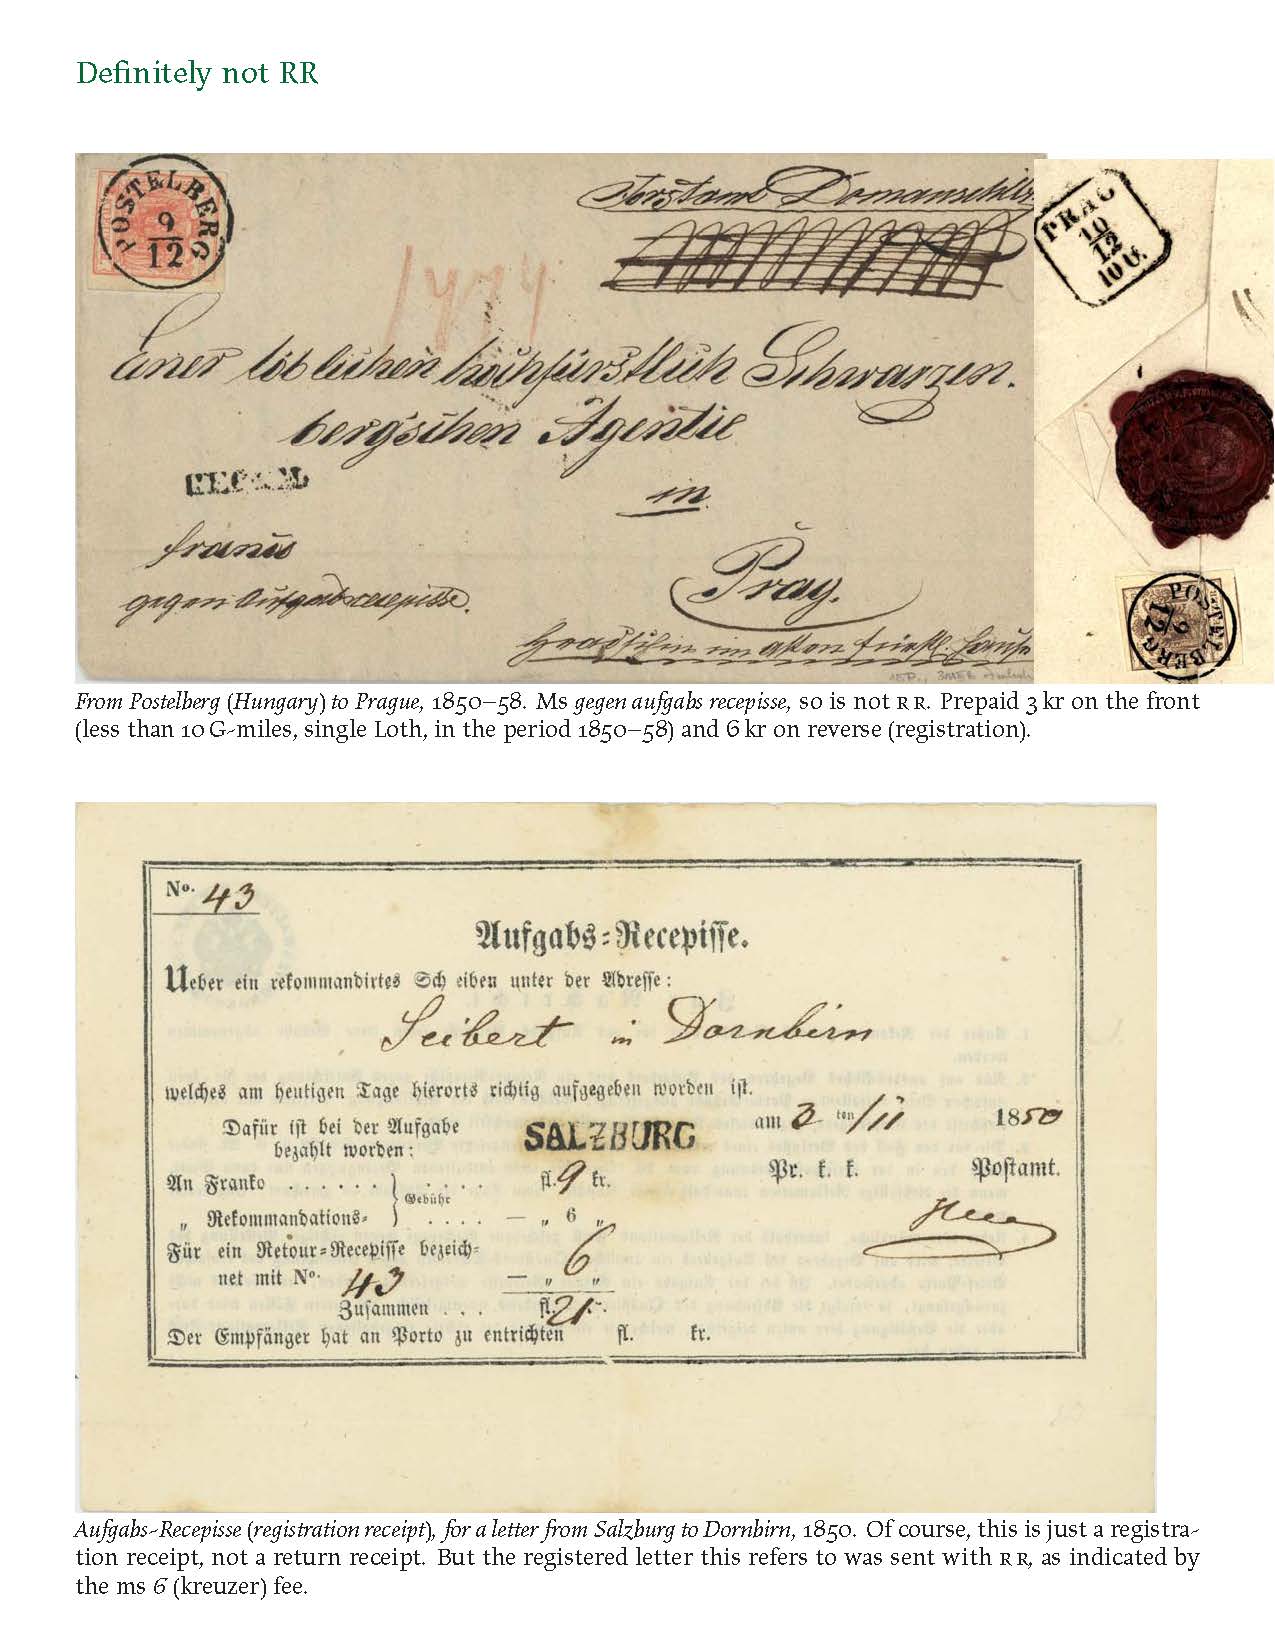 Definitely not RR
POSTELBERG
9
12
Forstamt Domauschitz
PRAG
10
12
10 U.
Einer löblichen hochfürstlich Schwarzen.
berg'schen Agentie
RECOM
in
franco
gegen Aufgabsrecepisse.
Prag.
POSTELBERG
9
12
From Postelberg (Hungary) to Prague, 1850–58. Ms gegen aufgabs recepisse, so is not RR. Prepaid 3 kr on the front
(less than 10 G-miles, single Loth, in the period 1850–58) and 6 kr on reverse (registration).
No. 43
Aufgabs-Recepisse.
Ueber ein rekommandirtes Sch eiben unter der Adresse:
Seibert in Dornbirn
welches am heutigen Tage hierorts richtig aufgegeben worden ist.
Dafür ist bei der Aufgabe
bezahlt worden:
SALZBURG
am 3 ten/11 1850
Pr. k. k. Postamt.
An Franko . . . . . . } Gebühr . . . . fl. 9 kr.
„ Rekommandations- } . . . . — „ 6 „
Für ein Retour-Recepisse bezeich-
net mit No. 43 — „ 6 „
Zusammen . . . fl. 21 kr.
Der Empfänger hat an Porto zu entrichten fl. kr.
Aufgabs-Recepisse (registration receipt), for a letter from Salzburg to Dornbirn, 1850. Of course, this is just a registra-
tion receipt, not a return receipt. But the registered letter this refers to was sent with RR, as indicated by
the ms 6 (kreuzer) fee.